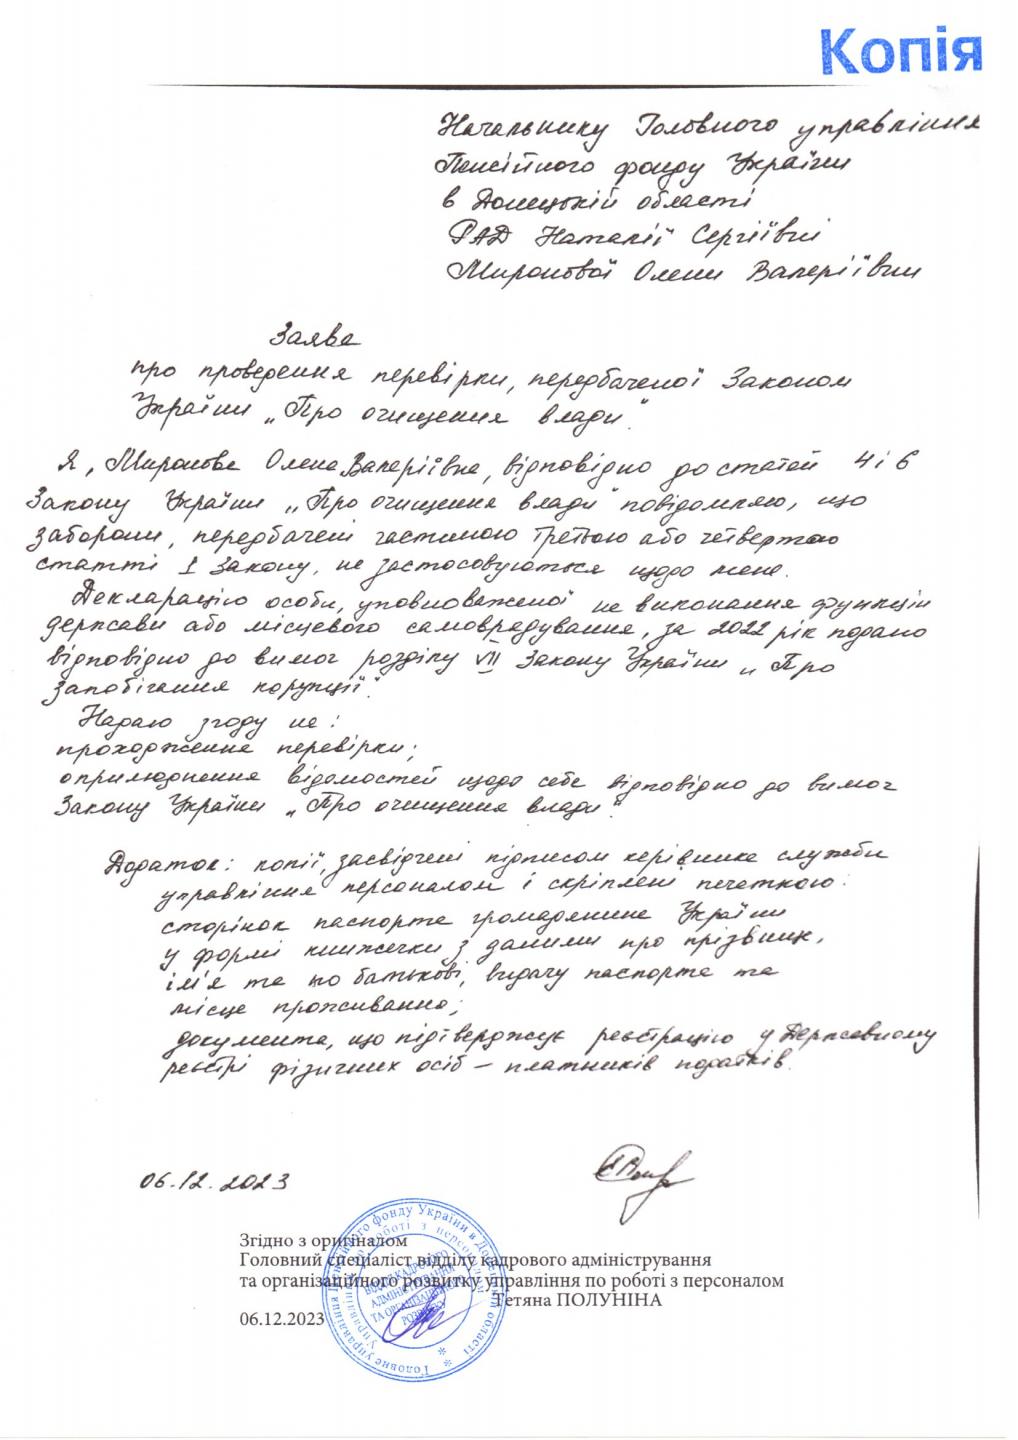 Копія
Начальнику Головного управління
Пенсійного фонду України
в Донецькій області
РАД Наталії Сергіївні
Миронової Олени Валеріївни
Заява
про проведення перевірки, передбаченої Законом
України „Про очищення влади"
Я, Миронова Олена Валеріївна, відповідно до статей 4 і 6
Закону України „Про очищення влади" повідомляю, що
заборони, передбачені частиною третьою або четвертою
статті 1 Закону, не застосовуються щодо мене.
Декларацію особи, уповноваженої на виконання функцій
держави або місцевого самоврядування, за 2022 рік подано
відповідно до вимог розділу VII Закону України „Про
запобігання корупції".
Надаю згоду на:
проходження перевірки;
оприлюднення відомостей щодо себе відповідно до вимог
Закону України „Про очищення влади".
Додаток: копії, засвідчені підписом керівника служби
управління персоналом і скріплені печаткою:
сторінок паспорта громадянина України
у формі книжечки з даними про прізвище,
ім'я та по батькові, видачу паспорта та
місце проживання;
документа, що підтверджує реєстрацію у Державному
реєстрі фізичних осіб – платників податків.
06.12.2023
Згідно з оригіналом
Головний спеціаліст відділу кадрового адміністрування
та організаційного розвитку управління по роботі з персоналом
Тетяна ПОЛУНІНА
06.12.2023
Головне управління Пенсійного фонду України в Донецькій області
Управління по роботі з персоналом
ВІДДІЛ КАДРОВОГО
АДМІНІСТРУВАННЯ
ТА ОРГАНІЗАЦІЙНОГО
РОЗВИТКУ